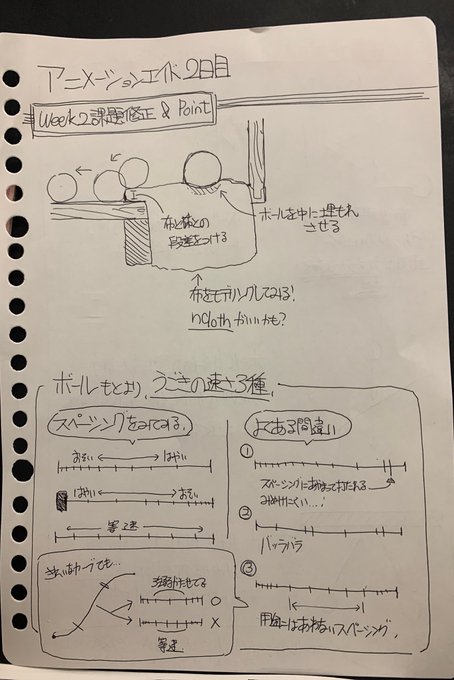 アニメーションエイド2日目
Week2課題修正 & Point
布と床との
段差をつける
ボールを中に埋もれ
させる
布をモデリングしてみる!
nclothがいいかも?
ボールもとより、うごきの速さ3種、
スペーシングをみてみる、
おそい はやい
はやい おそい
等速
よくある間違い
①
スペーシングにあ
みわけにくい…!
②
バラバラ
③
用途にはあわないスペーシング、
カーブでも…
強弱がたせてる
○
×
等速